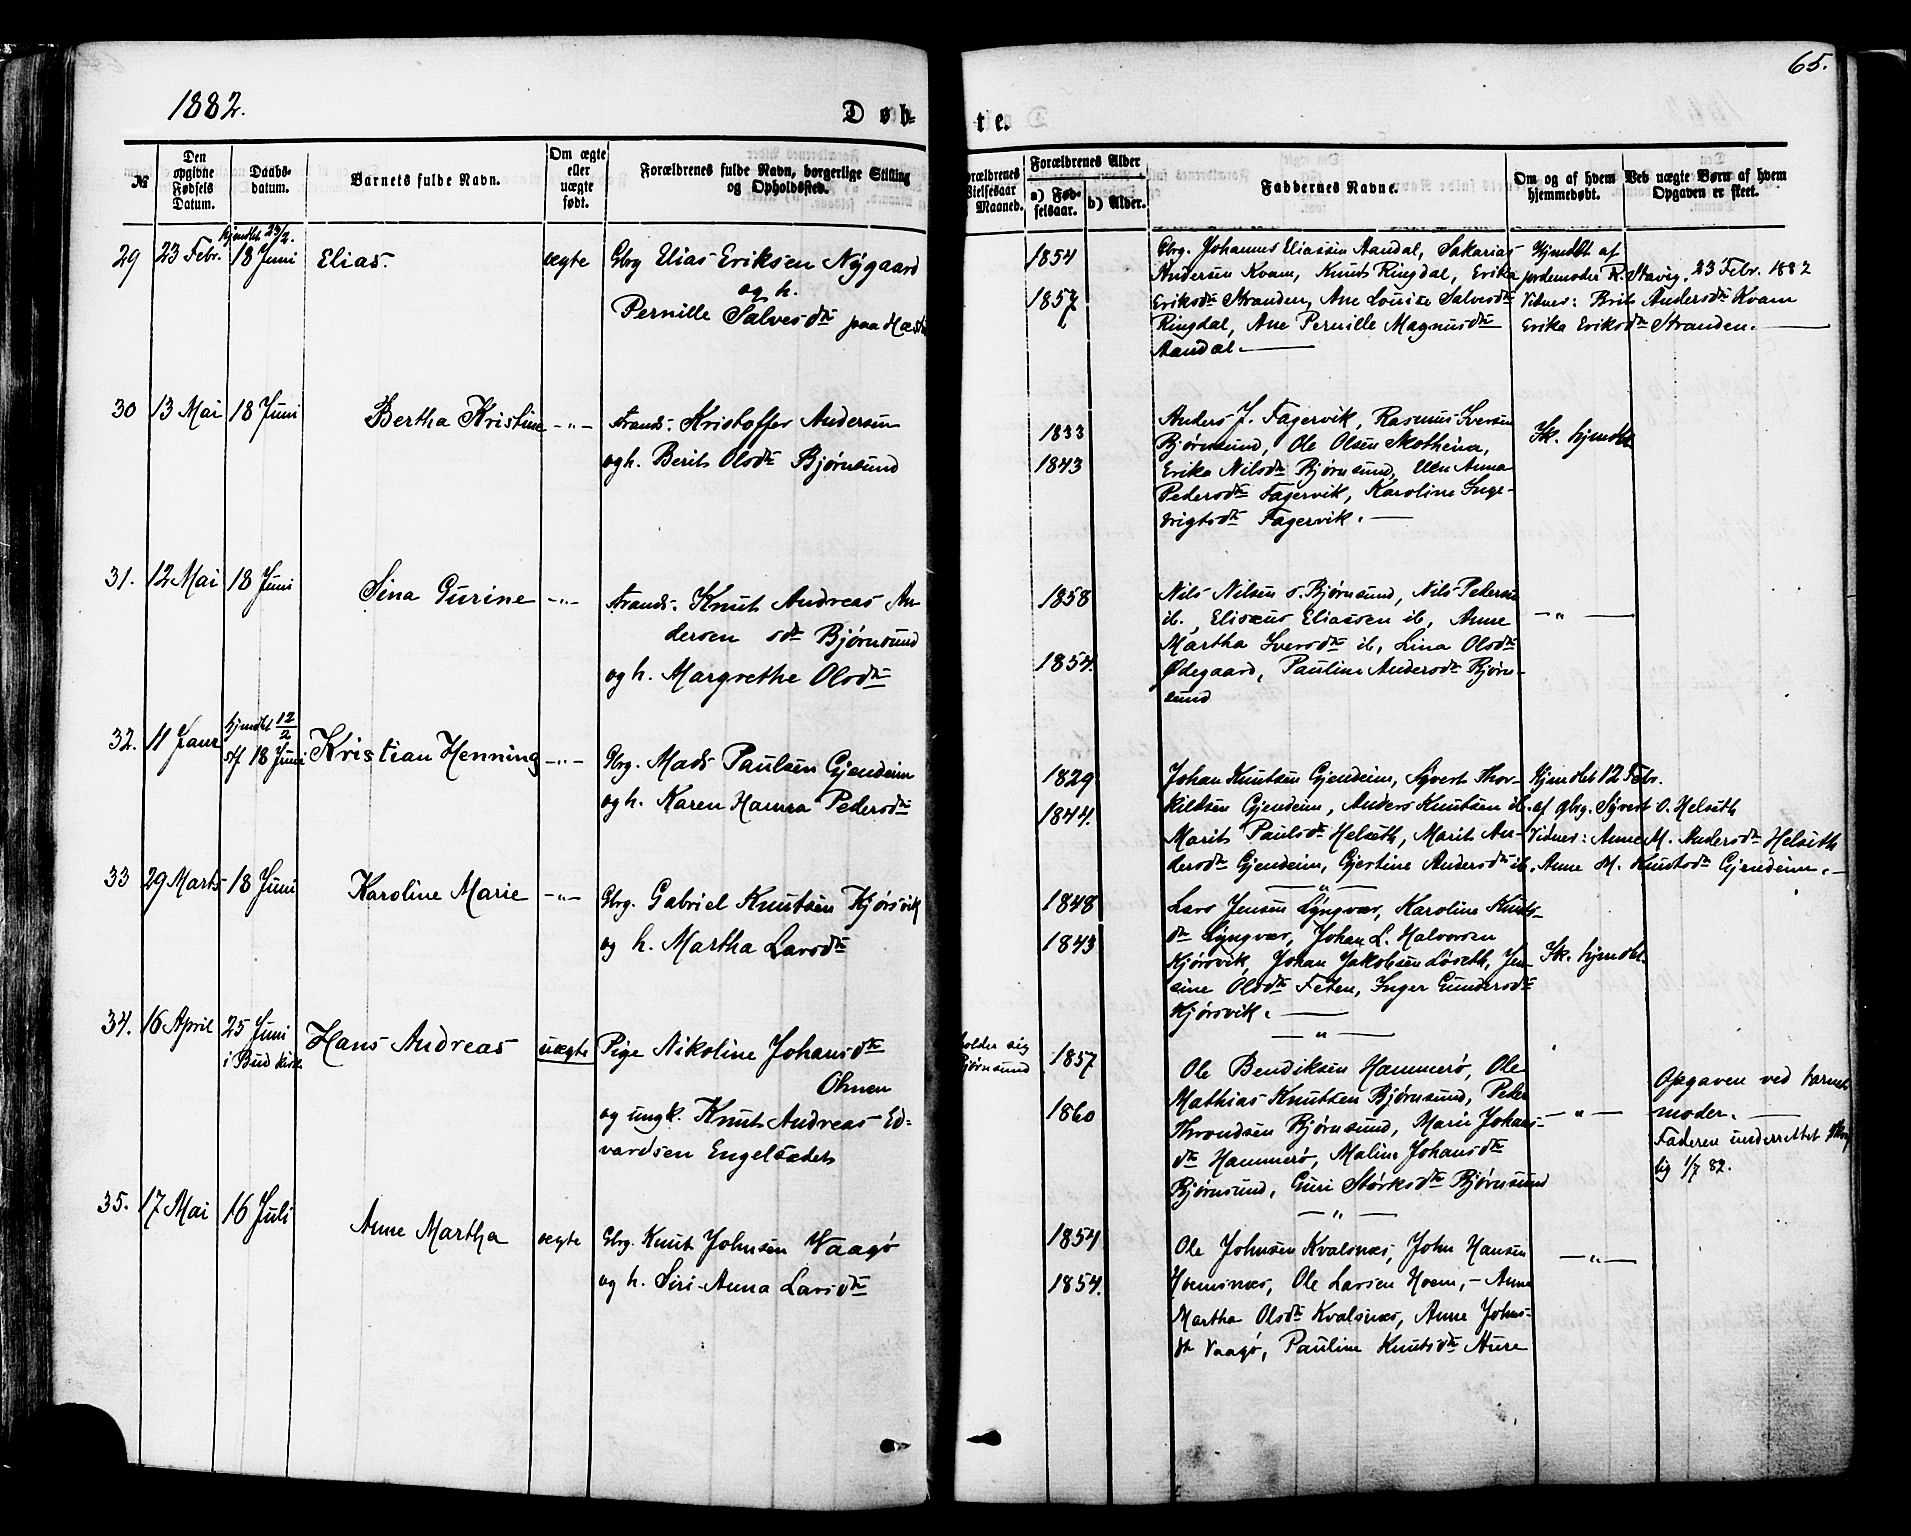 65.
1882.
Døb-
te.
№
Den opgivne Fødsels Datum.
Daabs-datum.
Barnets fulde Navn.
Om ægte eller uægte født.
Forældrenes fulde Navn, borgerlige Stilling og Opholdssted.
Forældrenes Vielsesaar Maaned.
Forældrenes Alder
a) Fød-selsaar.
b) Alder.
Faddernes Navne.
Om og af hvem hjemmedøbt.
Ved uægte Børn af hvem Opgaven er skeet.
29
23 Febr.
hjemdbt 23/2.
18 Juni
Elias.
ægte
Gbrg Elias Eriksen Nygaard
og h.
Pernille Salvesdtr paa
1854
1857
Gbrg. Johannes Eliassen Aandal, Sakarias
Andersen Kvam, Knut Ringdal, Erika
Eriksdtr Stranden, Ane Louise Salvesdtr
Ringdal, Ane Pernille Magnusdtr
Aandal.
Hjemdbt af
jordemoder R. Stavig. 23 Febr. 1882
Vidner: Brit Andersdtr Kvam
Erika Eriksdtr Stranden.
30
13 Mai
18 Juni
Bertha Kristine
-"-
Strands. Kristoffer Andersen
og h. Berit Olsdtr Bjørnsund
1833
1843
Anders J. Fagervik, Rasmus Iversen
Bjørnsund, Ole Olsen Skotheim,
Erika Nilsdtr Bjørnsund, Ellen Anna
Pedersdtr Fagervik, Karoline Inge-
brigtsdtr Fagervik.
Ik. hjemdbt
31.
12 Mai
18 Juni
Sina Gurine
-"-
Strands. Knut Andreas An
dersen sdtr Bjørnsund
og h. Margrethe Olsdtr
1858
1854.
Nils Nilsen s. Bjørnsund, Nils Pedersen
ib., Elisæus Eliassen ib, Anne
Martha Iversdtr ib, Lina Olsdtr
Ødegaard, Pauline Andersdtr Bjørn-
sund
-"-
32.
11 Janr
hjemdbt 12/2
stf 18 Juni
Kristian Henning
-"-
Gbrg. Mads Paulsen Gjendeim
og h. Karen Hanna Pedersdtr
1829
1844.
Johan Knutsen Gjendeim, Syvert Thor-
kildsen Gjendeim, Anders Knutsen ib.
Marit Paulsdtr Helseth, Marit An-
dersdtr Gjendeim, Gjertine Andersdtr ib.
Hjemdbt 12 Febr.
af gbrg. Syvert O. Helseth
Vidner: Anne M. Andersdtr Helseth
Anne M. Knutsdtr Gjendeim.
33
29 Marts
18 Juni
Karoline Marie
-"-
Gbrg. Gabriel Knutsen Kjørsvik
og h. Martha Larsdtr
1848
1843
-"-
Lars Jensen Lyngvær, Karoline Knuts-
dtr Lyngvær, Johan L. Halvorsen
Kjørsvik, Johan Jakobsen Løseth, Jen-
sine Olsdtr Feten, Inger Gundersdtr
Kjørsvik.
Ik. hjemdbt.
34.
16 April
25 Juni
i Bud kirke
Hans Andreas
uægte
Pige Nikoline Johansdtr
Ohnen
og ungk. Knut Andreas Ed-
vardsen Engelsæter
holder sig
Bjørnsund
1857
1860
-"-
Ole Bendiksen Hammerø, Ole
Mathias Knutsen Bjørnsund, Peter
Throndsen Bjørnsund, Marie Johans-
dtr Hammerø, Maline Johansdtr
Bjørnsund, Guri Størksdtr Bjørnsund
-"-
Opgaven ved barnets
moder.
Faderen underrettet
lig 1/7 82.
35.
17 Mai
16 Juli
Anne Martha
ægte
Gbrg. Knut Johnsen Vaagø
og h. Siri-Anna Larsdtr
1854
1854.
-"-
Ole Johnsen Kvalsnæs, John Hansen
Hoemsnæs, Ole Larsen Hoem, - Anne
Martha Olsdtr Kvalsnæs, Anne Johns-
dtr Vaagø, Pauline Knutsdtr Aure
-"-